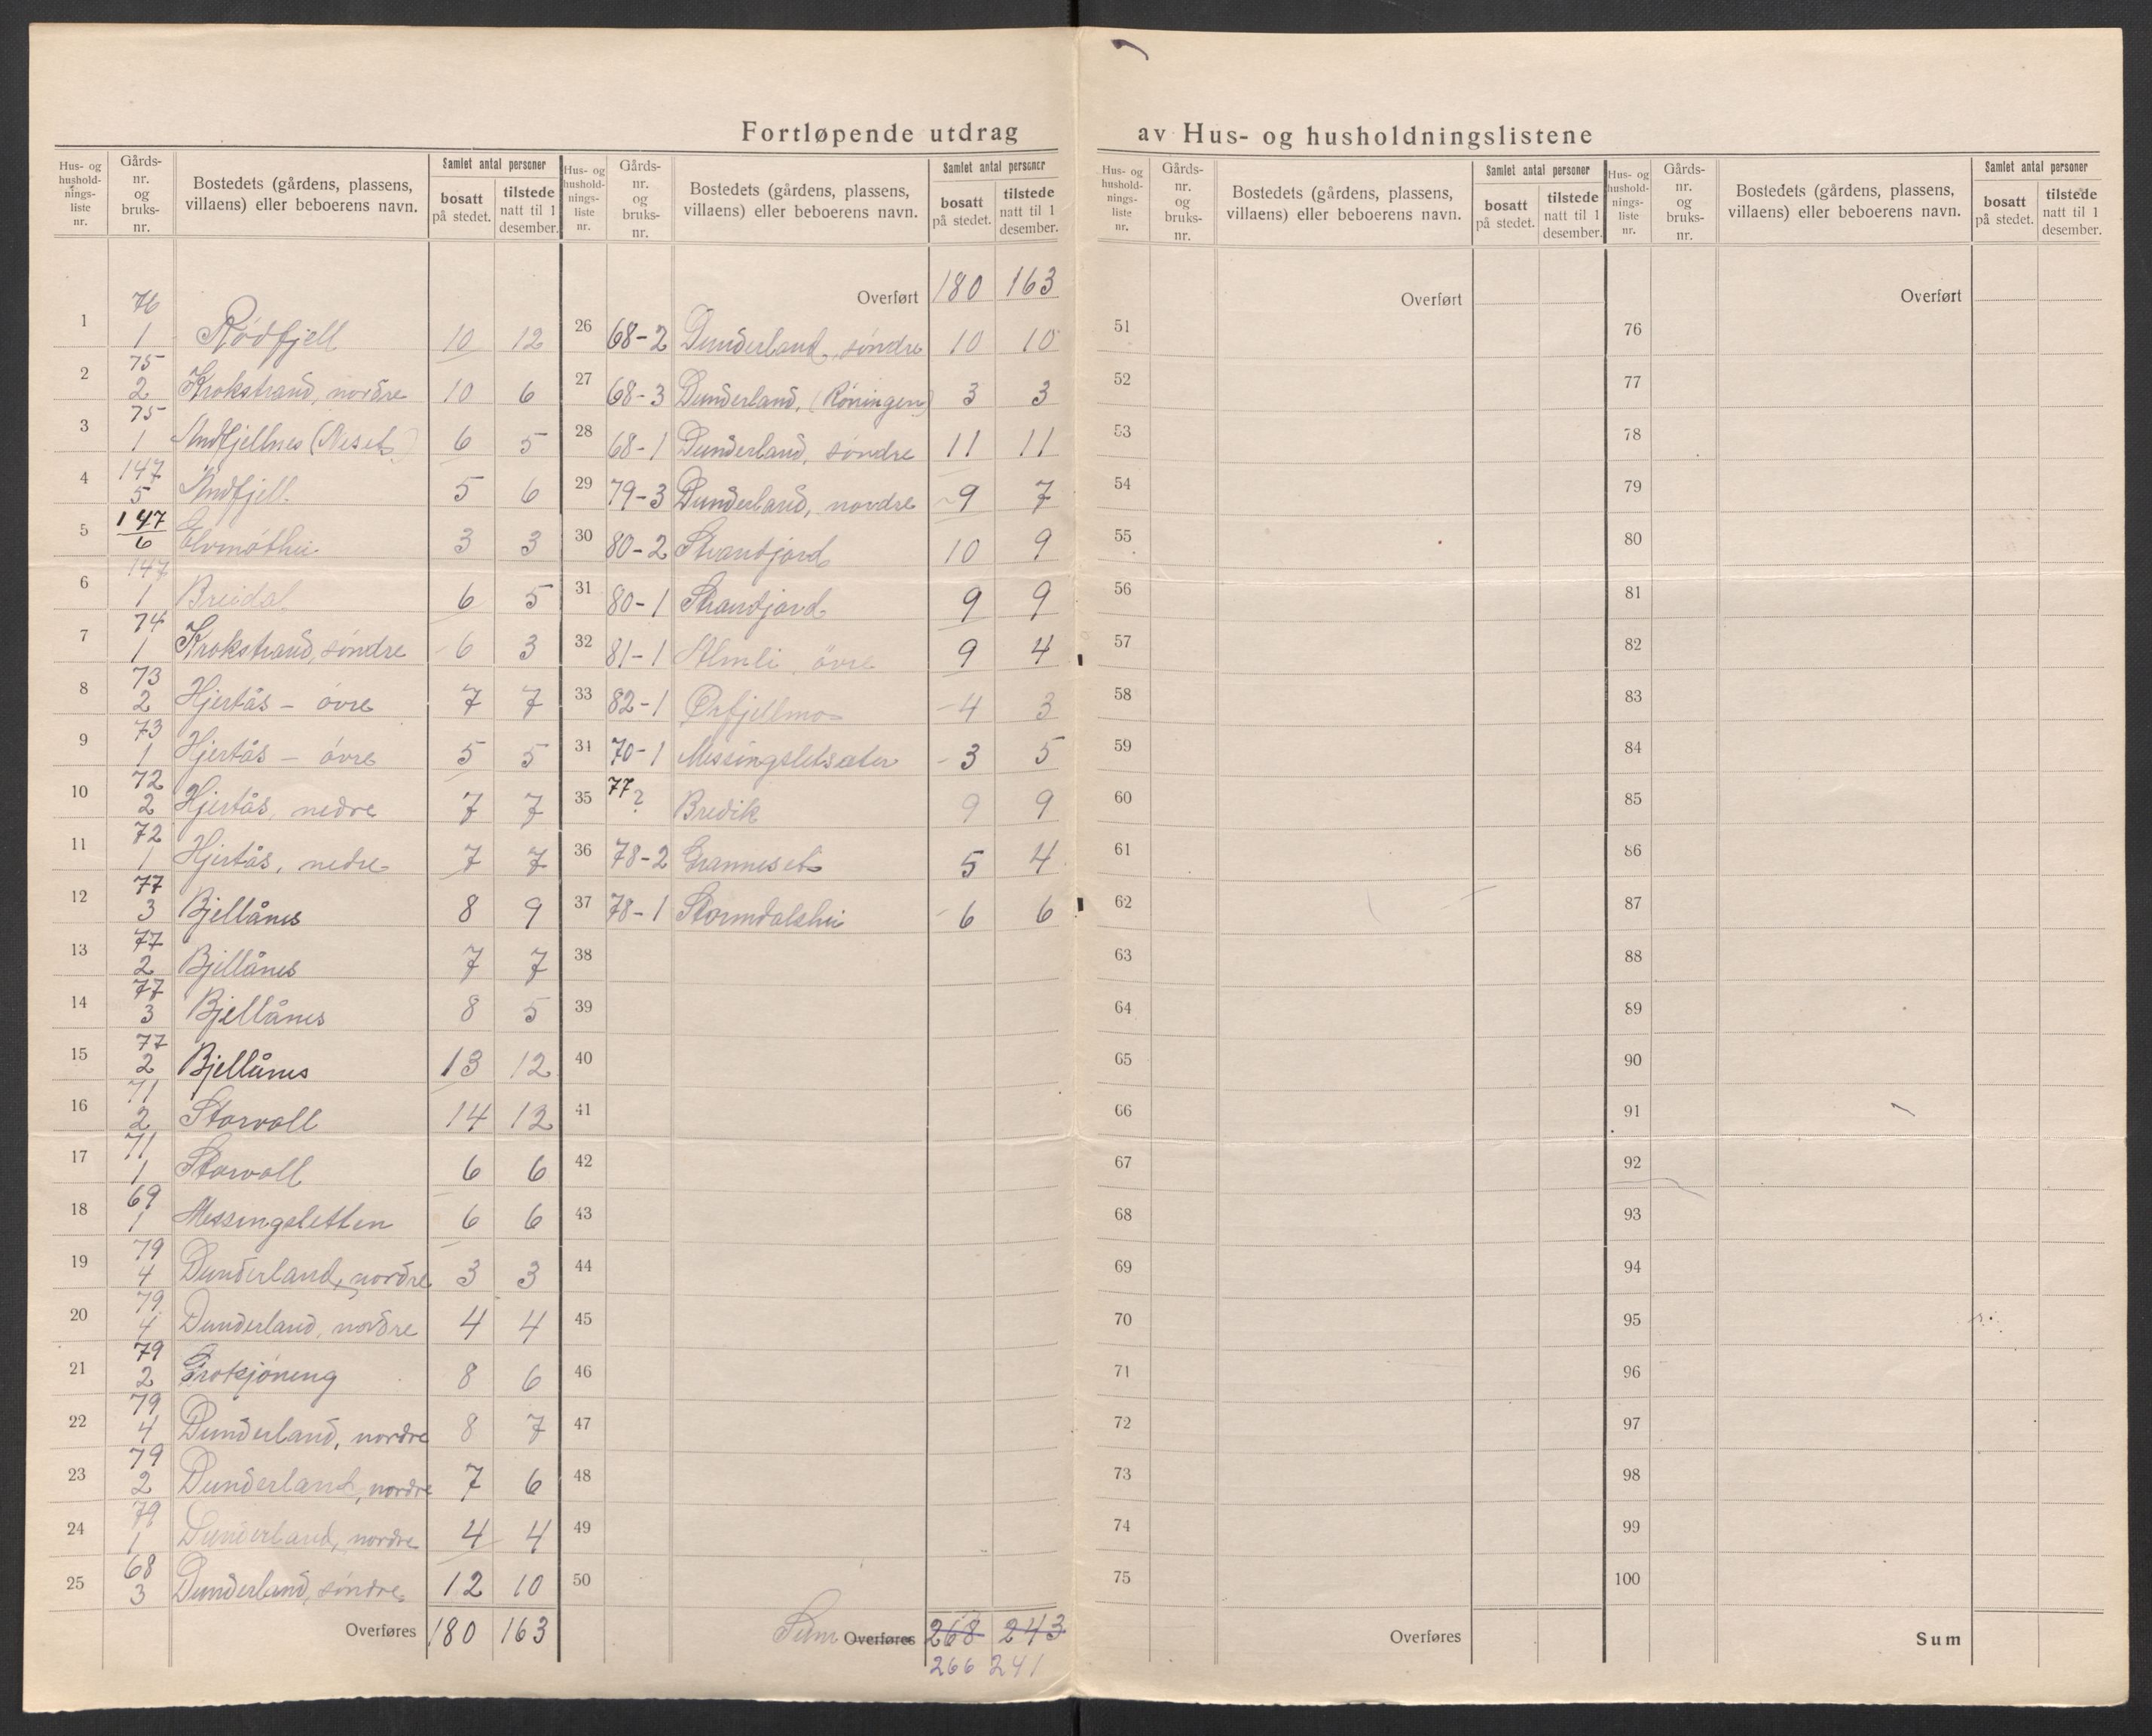 Fortløpende utdrag av Hus- og husholdningslistene
Hus- og hushold-nings-liste nr. Gårds-nr. og bruks-nr. Bostedets (gårdens, plassens, villaens) eller beboerens navn. Samlet antal personer bosatt på stedet. tilstede natt til 1 desember.
1 76 1 Rødfjell 10 12
2 75 2 Krokstrand, nordre 10 6
3 75 1 Andfjellnes (Neset) 6 5
4 147 5 Andfjell. 5 6
5 147 6 Elvmøthei 3 3
6 147 1 Bredal 6 5
7 74 1 Krokstrand, søndre 6 3
8 73 2 Hjertås - øvre 7 7
9 73 1 Hjertås - øvre 5 5
10 72 2 Hjertås, nedre 7 7
11 72 1 Hjertås, nedre 7 7
12 77 3 Bjellånes 8 9
13 77 2 Bjellånes 7 7
14 77 3 Bjellånes 8 5
15 77 2 Bjellånes 13 12
16 71 2 Storvoll 14 12
17 71 1 Storvoll 6 6
18 69 1 Messingsletten 6 6
19 79 4 Dunderland, nordre 3 3
20 79 4 Dunderland, nordre 4 4
21 79 2 8 6
22 79 4 Dunderland, nordre 8 7
23 79 2 Dunderland, nordre 7 6
24 79 1 Dunderland, nordre 4 4
25 68 3 Dunderland, søndre 12 10
Overføres 180 163
Hus- og hushold-nings-liste nr. Gårds-nr. og bruks-nr. Bostedets (gårdens, plassens, villaens) eller beboerens navn. Samlet antal personer bosatt på stedet. tilstede natt til 1 desember.
Overført 180 163
26 68-2 Dunderland, søndre 10 10
27 68-3 Dunderland, (Røningen) 3 3
28 68-1 Dunderland, søndre 11 11
29 79-3 Dunderland, nordre 9 7
30 80-2 Strandjord 10 9
31 80-1 Strandjord 9 9
32 81-1 Almli øvre 9 4
33 82-1 Ørfjellmo 4 3
34 70-1 Messingsletsæter 3 5
35 77 ? Bredik 9 9
36 78-2 Granneset 5 4
37 78-1 Stormdalshei 6 6
38
39
40
41
42
43
44
45
46
47
48
49
50
Sum Overføres 268 243
266 241
Hus- og hushold-nings-liste nr. Gårds-nr. og bruks-nr. Bostedets (gårdens, plassens, villaens) eller beboerens navn. Samlet antal personer bosatt på stedet. tilstede natt til 1 desember.
Overført
51
52
53
54
55
56
57
58
59
60
61
62
63
64
65
66
67
68
69
70
71
72
73
74
75
Overføres
Hus- og hushold-nings-liste nr. Gårds-nr. og bruks-nr. Bostedets (gårdens, plassens, villaens) eller beboerens navn. Samlet antal personer bosatt på stedet. tilstede natt til 1 desember.
Overført
76
77
78
79
80
81
82
83
84
85
86
87
88
89
90
91
92
93
94
95
96
97
98
99
100
Sum